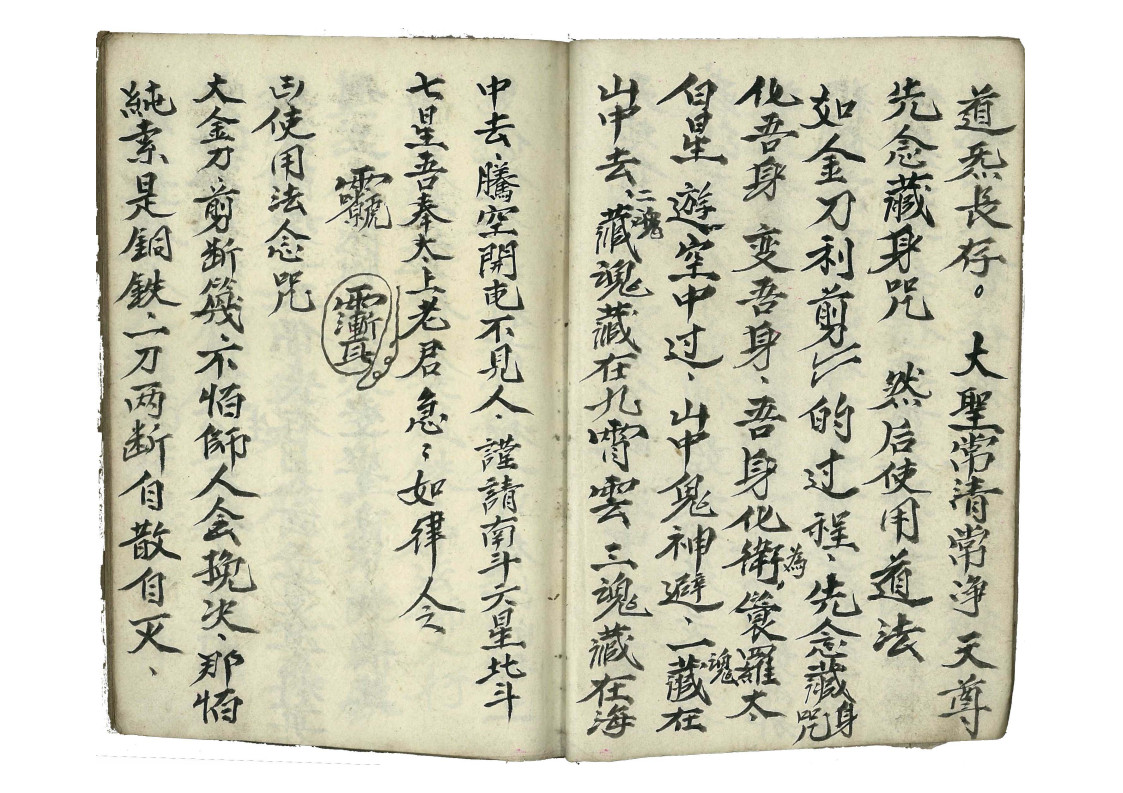 道炁長存。 大聖常清常净天尊
先念藏身咒 然后使用道法
如金刀利剪〻的过程、先念藏身咒
化吾身 变吾身、吾身化為 羅太、
白星 遊空中过、山中鬼神避、一魂藏在
山中去、二魂藏魂藏在九霄雲 三魂藏在海
中去、騰空開 不見人、謹請南斗六星北斗
七星吾奉太上老君急〻如律令、

正使用法念咒
大金刀、剪断 、不怕師人会挽决、那怕
純素是銅鉄、一刀两断自散自灭、